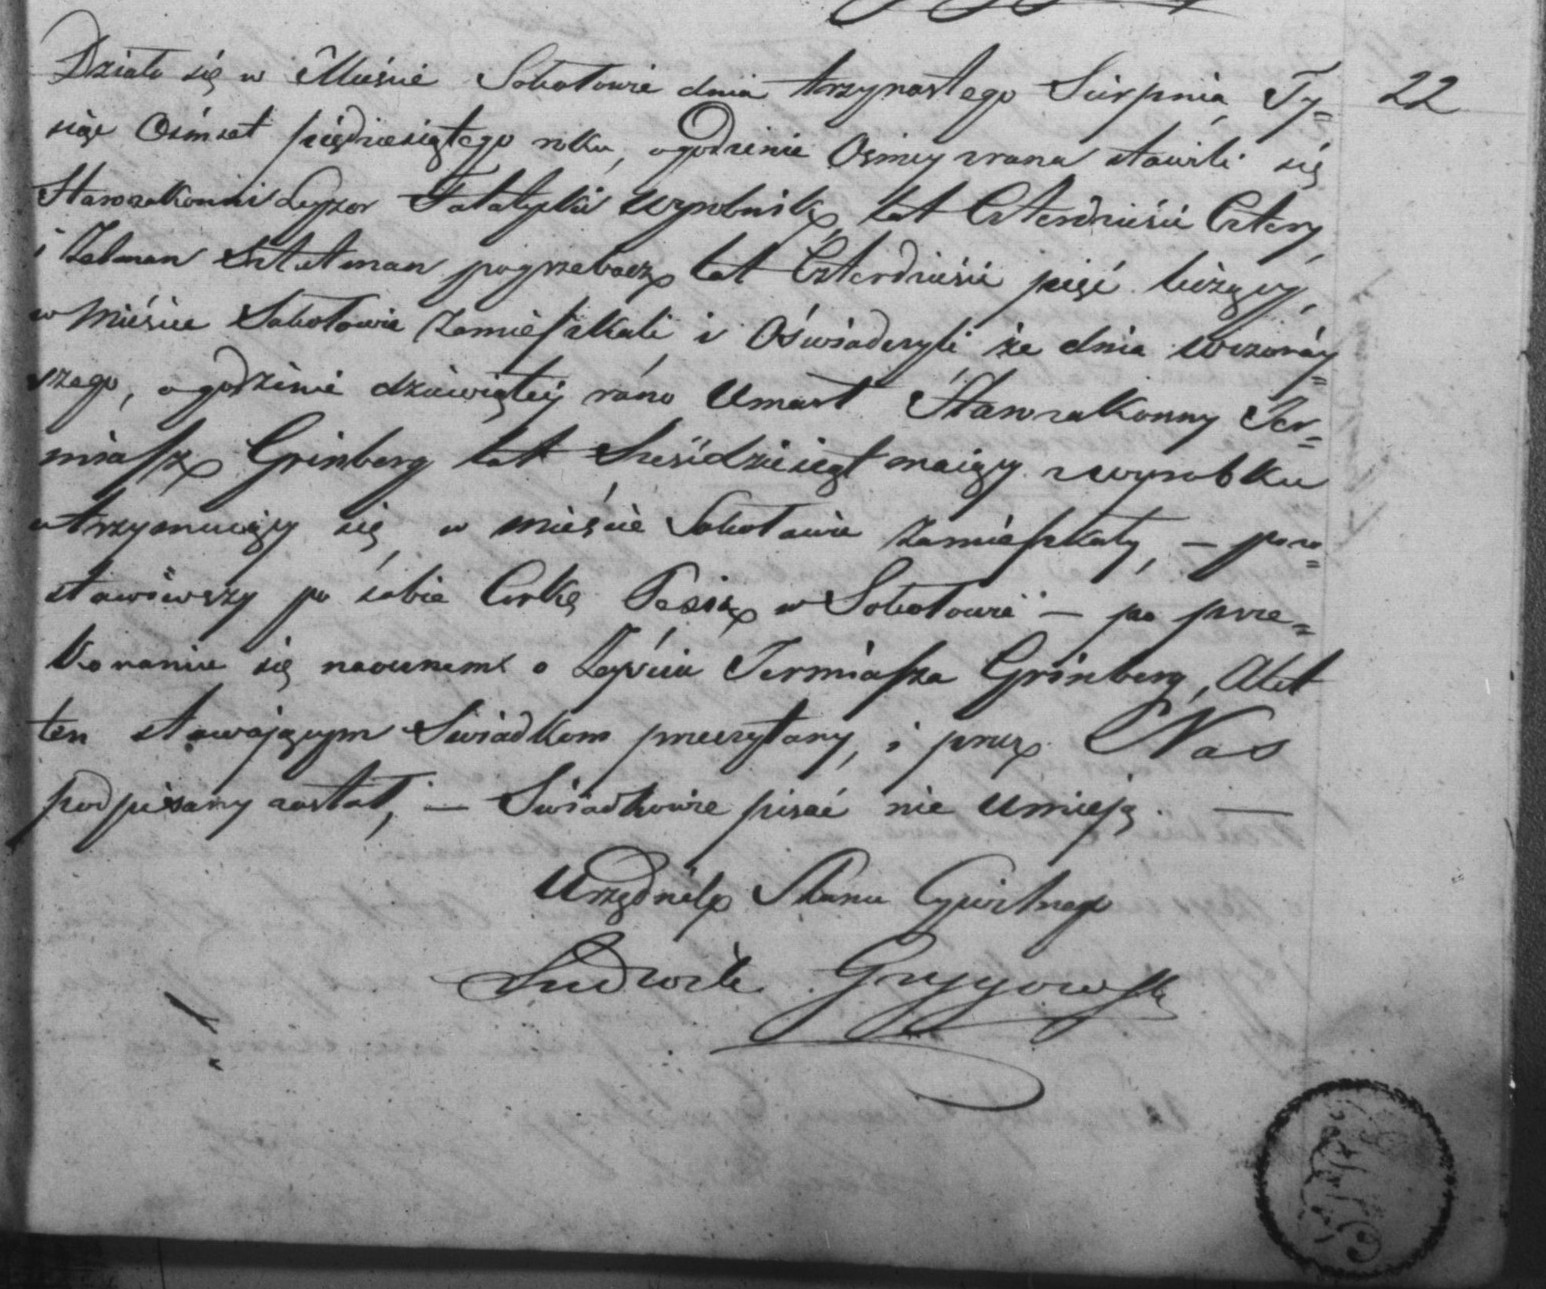 Działo się w Mieście Sokołowie dnia trzynastego Sierpnia Ty= 22
siąc Ośmset pięćdziesiątego roku, o godzinie Ósmey zrana stawili się
Starozakonni Leyzor wyrobnik lat Czterdzieści Cztery,
i Zelman Sztutman pogrzebacz lat Czterdzieści pięć liczący,
w Mieście Sokołowie zamieszkali i Oświadczyli że dnia wczoray=
szego, o godzinie dziewiątej ráno Umarł Starozakonny Jer=
miasz Grinberg lat Sześćdziesiąt maiący z wyrobku
utrzymuiący się, w mieście Sokołowie zamieszkały, — pozo=
stawiwszy po sobie Corkę w Sokołowie — po prze=
konaniu się naocznem o Zeyściu Jermiasza Grinberg, Akt
ten stawającym Swiadkom przeczytany, i przez Nas
podpisany został, — Swiadkowie pisać nie umieją. —
Urzędnik Stanu Cywilnego
Ludwik